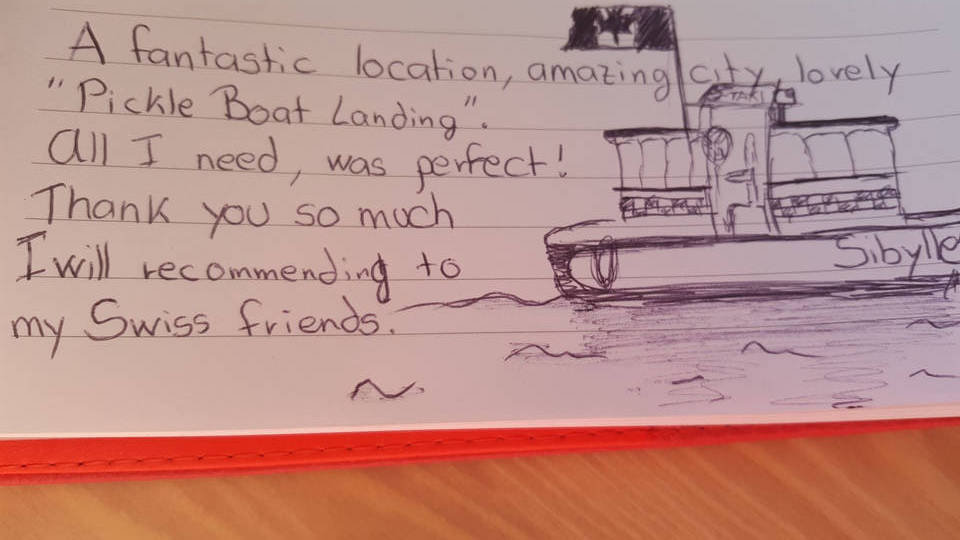 A fantastic location, amazing city, lovely
"Pickle Boat Landing".
All I need, was perfect!
Thank you so much
I will recommending to
my Swiss friends.
TAXI
Sibylle